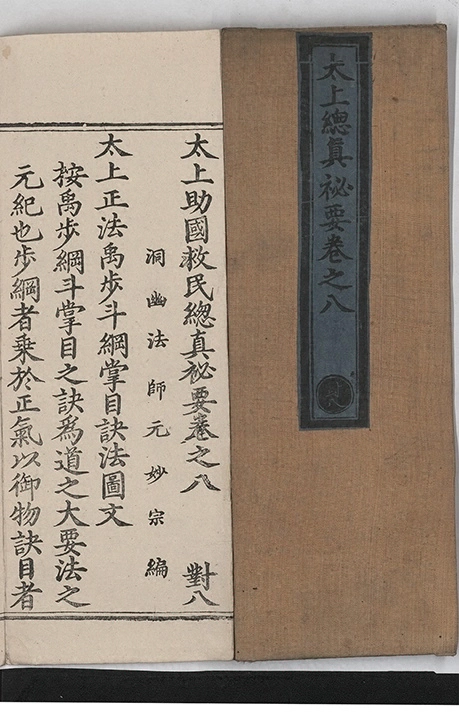 太上總真祕要卷之八
太上助國救民總真祕要卷之八 對八
洞幽法師元妙宗編
太上正法禹步斗綱掌目訣法圖文
按禹步綱斗掌目之訣爲道之大要法之
元紀也步綱者乗於正氣以御物訣目者